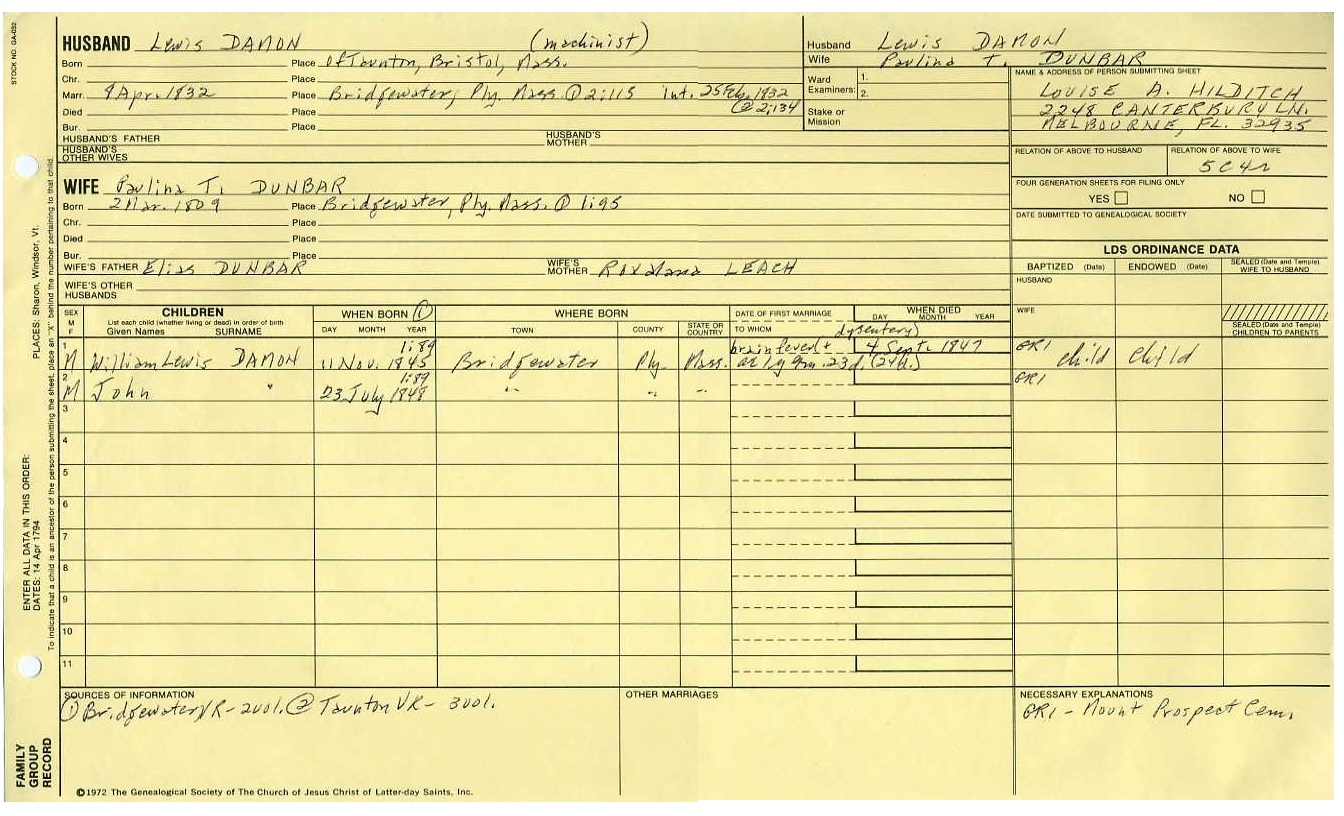 STOCK NO. GA-032
HUSBAND Lewis DAMON (machinist)
Born Place Of Taunton, Bristol, Mass.
Chr. Place
Marr. 8 Apr. 1832 Place Bridgewater, Ply. Mass. ② 2:115 int. 25 Feb. 1832
② 2:134
Died Place
Bur. Place
HUSBAND'S FATHER HUSBAND'S MOTHER
HUSBAND'S OTHER WIVES
WIFE Paulina T. DUNBAR
Born 2 Mar. 1809 Place Bridgewater, Ply. Mass. ① 1:95
Chr. Place
Died Place
Bur. Place
WIFE'S FATHER Elias DUNBAR WIFE'S MOTHER Roxalana LEACH
WIFE'S OTHER HUSBANDS
Husband Lewis DAMON
Wife Paulina T. DUNBAR
Ward Examiners: 1.
2.
Stake or Mission
NAME & ADDRESS OF PERSON SUBMITTING SHEET
LOUISE A. HILDITCH
2248 CANTERBURY LN.
MELBOURNE, FL. 32935
RELATION OF ABOVE TO HUSBAND RELATION OF ABOVE TO WIFE
5C4r
FOUR GENERATION SHEETS FOR FILING ONLY
YES NO
DATE SUBMITTED TO GENEALOGICAL SOCIETY
LDS ORDINANCE DATA
BAPTIZED (Date) ENDOWED (Date) SEALED (Date and Temple) WIFE TO HUSBAND
HUSBAND
WIFE
SEALED (Date and Temple) CHILDREN TO PARENTS
SEX M F CHILDREN WHEN BORN ① WHERE BORN DATE OF FIRST MARRIAGE WHEN DIED
List each child (whether living or dead) in order of birth
Given Names SURNAME DAY MONTH YEAR TOWN COUNTY STATE OR COUNTRY TO WHOM DAY MONTH YEAR
dysentery)
1 1:89 brain fever + 4 Sept. 1847 GR1
M William Lewis DAMON 11 Nov. 1845 Bridgewater Ply. Mass. ae 1y 9m. 23d. (24d.) child child
2 1:89 GR1
M John " 23 July 1848 " " "
3
4
5
6
7
8
9
10
11
SOURCES OF INFORMATION
① Bridgewater VR - 2 vol. ② Taunton VR - 3 vol.
OTHER MARRIAGES
NECESSARY EXPLANATIONS
GR1 - Mount Prospect Cem.
©1972 The Genealogical Society of The Church of Jesus Christ of Latter-day Saints, Inc.
FAMILY GROUP RECORD
ENTER ALL DATA IN THIS ORDER:
DATES: 14 Apr 1794
PLACES: Sharon, Windsor, Vt.
To indicate that a child is an ancestor of the person submitting the sheet, place an "X" behind the number pertaining to that child.